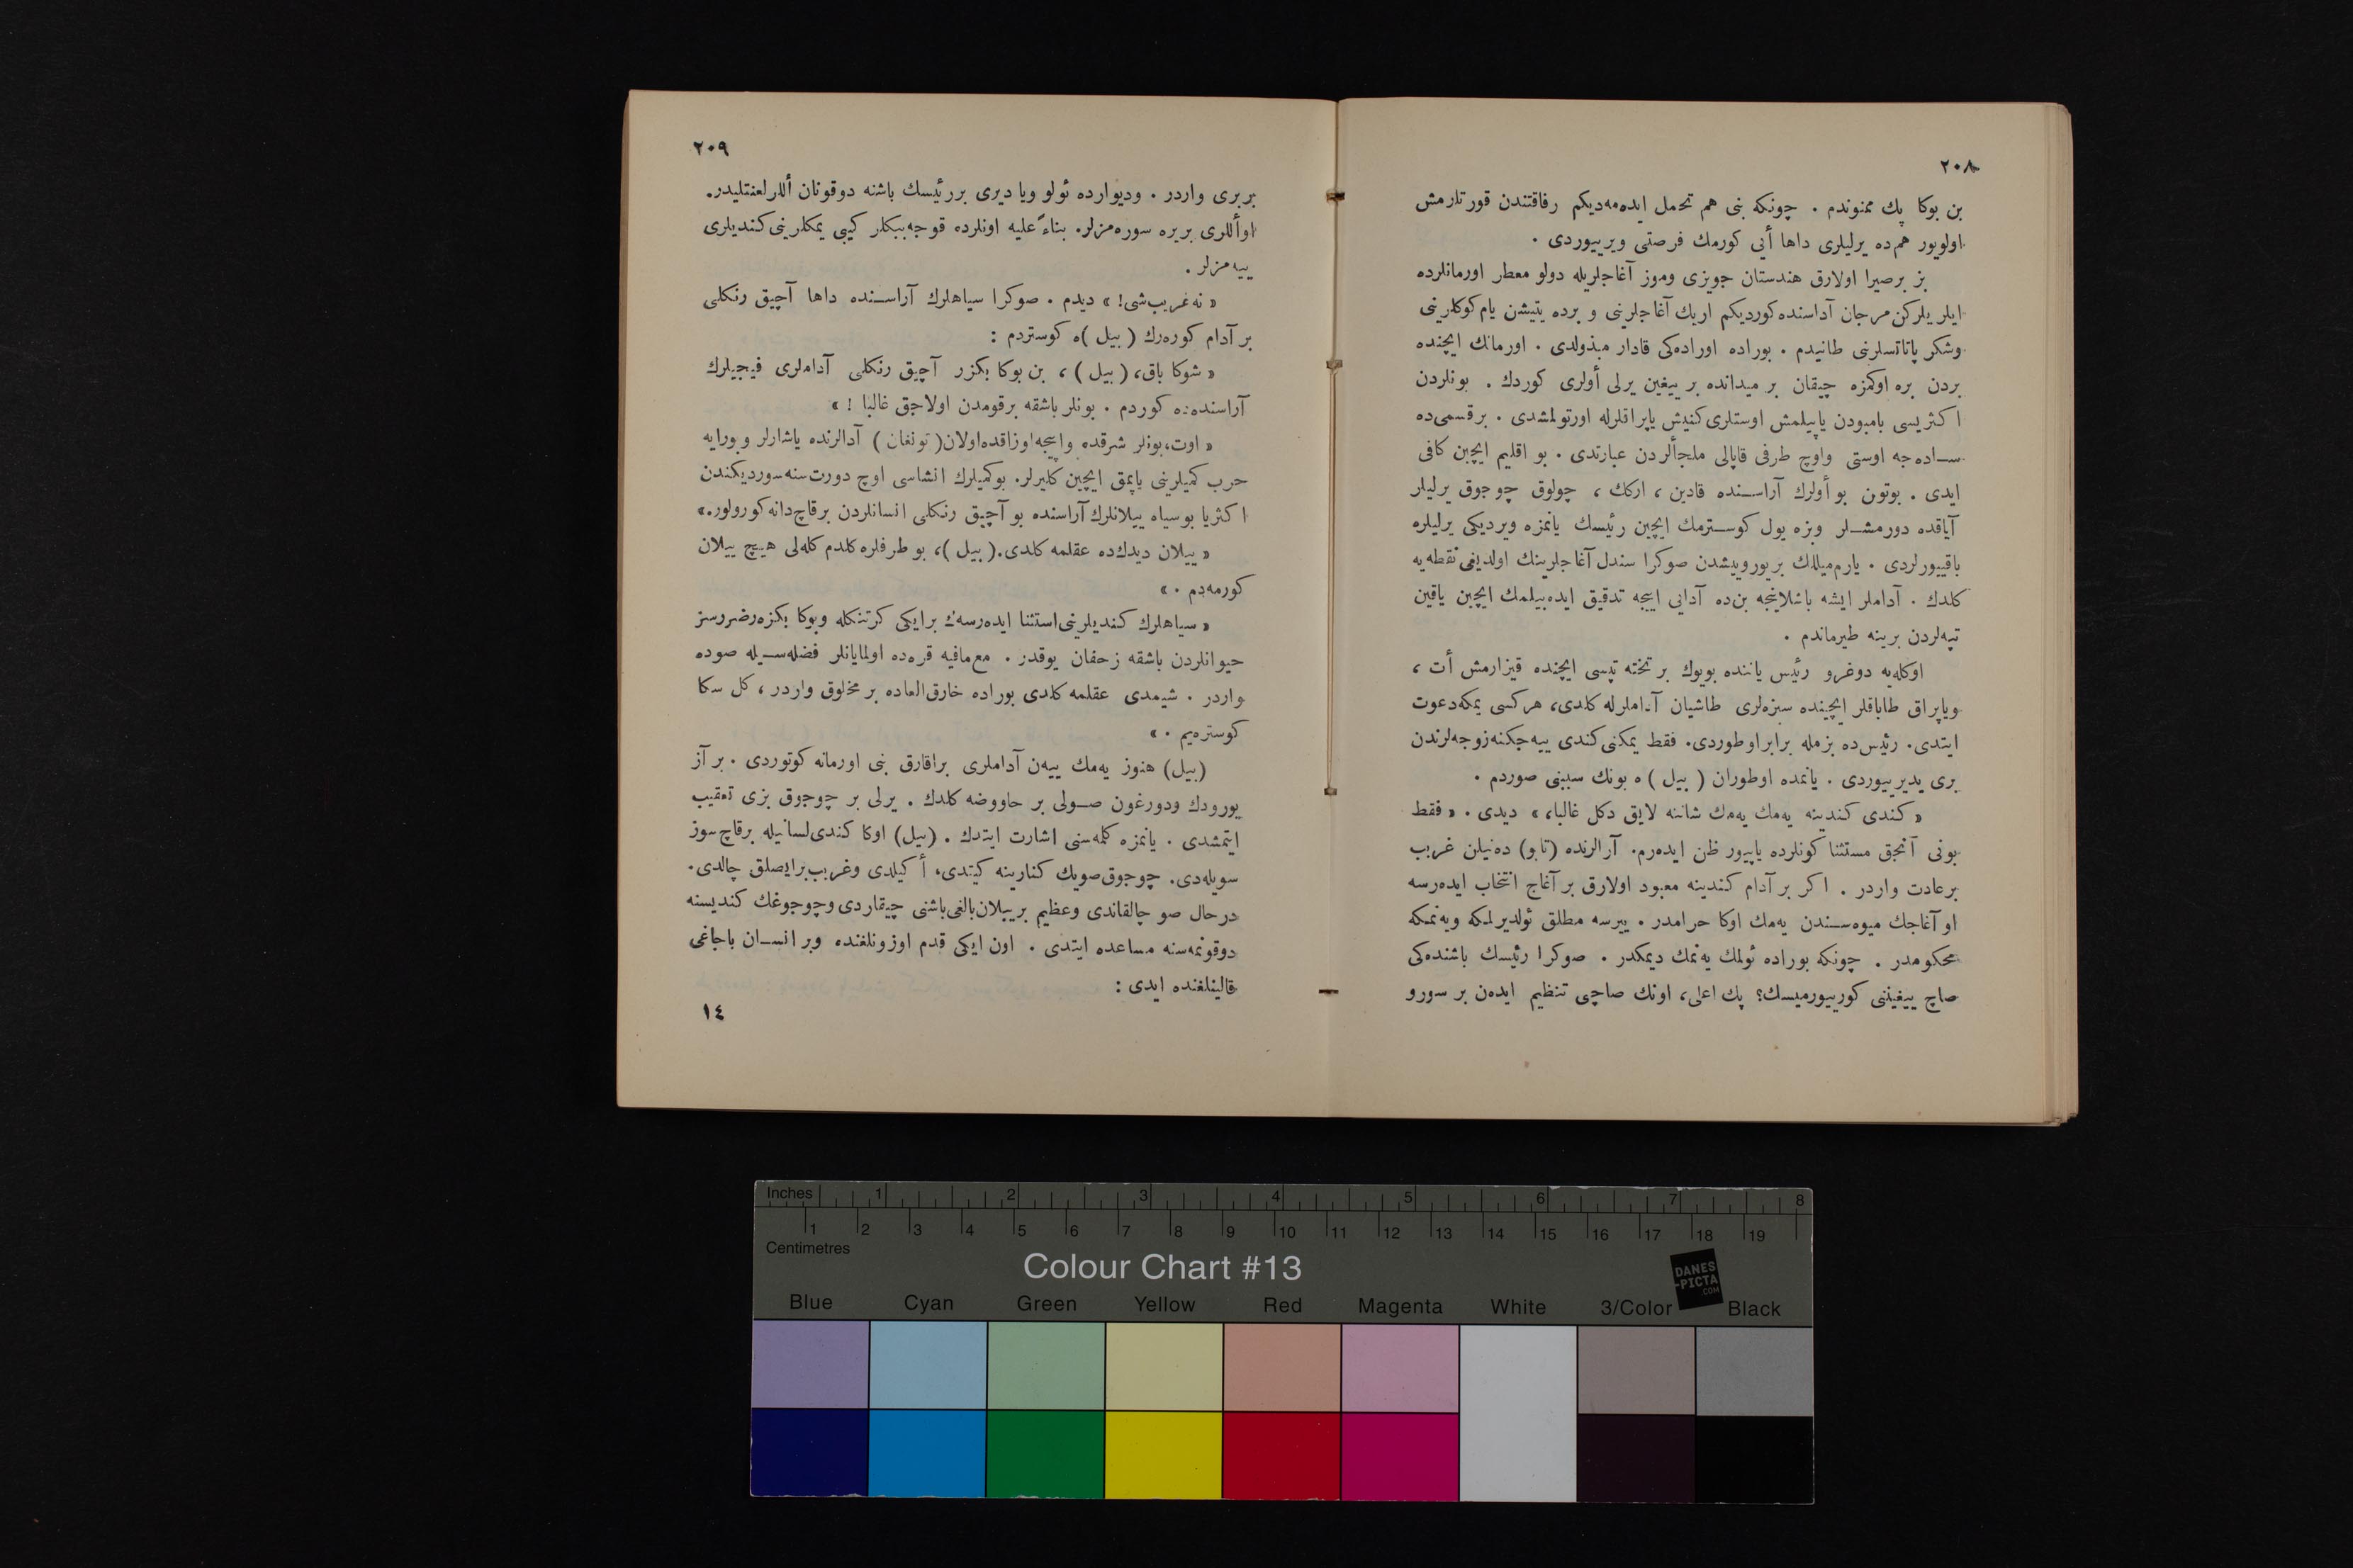 ٢٠٨
بن بوكا پك ممنوندم . چونكه بنی هم تحمل ايده‌مه‌ديكم رفاقتندن قورتارمش
اولويور هم‌ده يرليلری داها أيی كورمك فرصتی ويرييوردی .
بز برصيرا اولارق هندستان جويزی وموز آغاجلريله دولو معطر اورمانلرده
ايلريلركن مرجان آداسنده كورديكم اربك آغاجلرينی و يرده يتيشن يام كوكلرينی
وشكر پاتاتسلرنی طانيدم . بوراده اوراده‌كی قادار مبذولدی . اورمانك ايچنده
بردن بره اوكمزه چيقان بر ميدانده بر ييغين يرلی أولری كوردك . بونلردن
اكثريسی بامبودن ياپيلمش اوستلری كنيش ياپراقلرله اورتولمشدی . برقسمی‌ده
ساده‌جه اوستی واوچ طرفی قاپالی ملجألردن عبارتدی . بو اقليم ايچين كافی
ايدی . بوتون بو أولرك آراسنده قادين ، اركك ، چولوق چوجوق يرليلر
آياقده دورمشلر وبزه يول كوسترمك ايچين رئيسك يانمزه ويرديكی يرليلره
باقييورلردی . يارم ميللك بريورويشدن صوكرا سندل آغاجلرينك اولديغی نقطه‌يه
كلدك . آداملر ايشه باشلاينجه بن‌ده آدايی اييجه تدقيق ايده‌بيلمك ايچين ياقين
تپه‌لردن برينه طيرماندم .
اوكله‌يه دوغرو رئيس ياننده بويوك بر تخته تپسی ايچنده قيزارمش أت ،
وياپراق طاباقلر ايچينده سبزه‌لری طاشيان آداملرله كلدی، هركسی يمكه دعوت
ايتدی. رئيس‌ده بزمله برابر اوطوردی. فقط يمكنی كندی ييه‌جكنه زوجه‌لرندن
بری يديرييوردی . يانمده اوطوران ( بيل )ه بونك سببنی صوردم .
« كندی كندينه يه‌مك يه‌مك شاننه لايق دكل غالبا، » ديدی . « فقط
بونی آنجق مستثنا كونلرده ياپيور ظن ايده‌رم. آرالرنده (تابو) ده‌نيلن غريب
برعادت واردر . اكر بر آدام كندينه معبود اولارق بر آغاج انتخاب ايده‌رسه
او آغاجك ميوه‌سندن يه‌مك اوكا حرامدر . ييرسه مطلق ئولديرلمكه ويه‌نمكه
محكومدر . چونكه بوراده ئولمك يه‌نمك ديمكدر . صوكرا رئيسك باشنده‌كی
صاچ ييغيننی كورييورميسك؟ پك اعلی، اونك صاچی تنظيم ايده‌ن بر سورو
٢٠٩
بربری واردر . وديوارده ئولو ويا ديری بررئيسك باشنه دوقونان أللر لعنتليدر.
اوأللری بريره سوره‌مزلر. بناءً عليه اونلرده قوجه‌ببكلر كيبی يمكلرينی كنديلری
ييه‌مزلر .
« نه غريب‌شی! » ديدم . صوكرا سياهلرك آراسنده داها آچيق رنكلی
بر آدام كوره‌رك ( بيل )ه كوستردم :
« شوكا باق، ( بيل ) ، بن بوكا بكزر آچيق رنكلی آداملری فيجيلرك
آراسنده‌ده كوردم . بونلر باشقه برقومدن اولاجق غالبا ! »
« اوت، بونلر شرقده واييجه اوزاقده اولان ( تونغان ) آدالرنده ياشارلر وبورايه
حرب كميلرينی ياپمق ايچين كليرلر. بوكميلرك انشاسی اوچ دورت سنه سورديكندن
اكثريا بوسياه ييلانلرك آراسنده بو آچيق رنكلی انسانلردن برقاچ دانه كورولور.»
« ييلان ديدك‌ده عقلمه كلدی. ( بيل )، بو طرفلره كلدم كله‌لی هيچ ييلان
كورمه‌دم . »
« سياهلرك كنديلرينی استثنا ايده‌رسه‌ك برايكی كرتنكله وبوكا بكزه‌ر ضررسز
حيوانلردن باشقه زحفان يوقدر . مع‌مافيه قره‌ده اولمايانلر فضله‌سيله صوده
واردر . شيمدی عقلمه كلدی بوراده خارق‌العاده بر مخلوق واردر ، كل سكا
كوستره‌يم . »
(بيل) هنوز يه‌مك ييه‌ن آداملری براقارق بنی اورمانه كوتوردی . بر آز
يورودك ودورغون صولی بر حاووضه كلدك . يرلی بر چوجوق بزی تعقيب
ايتمشدی . يانمزه كلمه‌سنی اشارت ايتدك . (بيل) اوكا كندی لسانيله برقاچ سوز
سويله‌دی. چوجوق صويك كنارينه كيتدی، أكيلدی وغريب برايصلق چالدی.
درحال صو چالقاندی وعظيم برييلان‌بالغی باشنی چيقاردی وچوجوغك كنديسنه
دوقونمه‌سنه مساعده ايتدی . اون ايكی قدم اوزونلغنده وبر انسان باجاغی
قالينلغنده ايدی :
١٤
Inches 1 2 3 4 5 6 7 8
1 2 3 4 5 6 7 8 9 10 11 12 13 14 15 16 17 18 19
Centimetres
Colour Chart #13
DANES
-PICTA
.COM
Blue Cyan Green Yellow Red Magenta White 3/Color Black